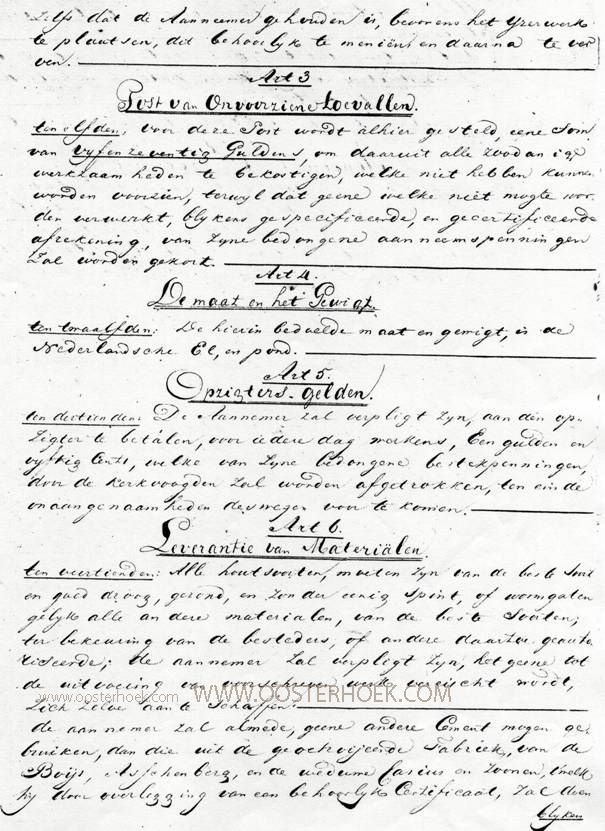 Zelfs dat de Aannemer gehouden is, bevorens het yzerwerk
te plaatsen, dit behoorlyk te meniën en daarna te ver
ven.
Art 3
Post van Onvoorziene toevallen.
ten elfden: voor deze Post wordt alhier gesteld, eene Som
van vyfenzeventig Guldens, om daaruit alle zoodanige
werkzaamheden te bekostigen, welke niet hebben kunnen
worden voorzien, terwyl dat geene welke niet mogte wor
den verwerkt, blykens gespecificeerde, en gecertificeerde
afrekening, van zyne bedongene aanneemspenningen
zal worden gekort.
Art 4.
De maat en het Gewigt.
ten twaalfden: De hierin bedoelde maat en gewigt, is de
Nederlandsche El, en pond.
Art 5.
Opzigters-gelden.
ten dertienden: De Aannemer zal verpligt zyn, aan den op-
zigter te betalen, voor iedere dag werkens, Een gulden en
vyftig Cents, welke van zyne bedongene bestekpenningen,
door de kerkvoogden zal worden afgetrokken, ten einde
onaangenaamheden deswegen voor te komen.
Art 6.
Leverantie van Materiälen.
ten veertienden: Alle houtsoorten, moeten zyn van de beste Soort
en goed droog, gezond, en zonder eenig spint, of wormgaten
gelyk alle andere materialen, van de beste Soorten;
ter bekeuring van de besteders, of andere daartoe geauto
riseerde; de aannemer zal verpligt zyn, het geene tot
de uitvoering van voorschreven werk vereischt wordt,
zich zelve aan te Schaffen.
www.oosterhoek.com WWW.OOSTERHOEK.COM
de aannemer zal almede, geene andere Cement mogen ge
bruiken, dan die uit de geoctroijeerde Fabriek, van de
Boijs, Asschenberg, en de weduwe Casius en Zoonen, twelk
hy door overlegging van een behoorlyk Certificaat, zal doen
blyken